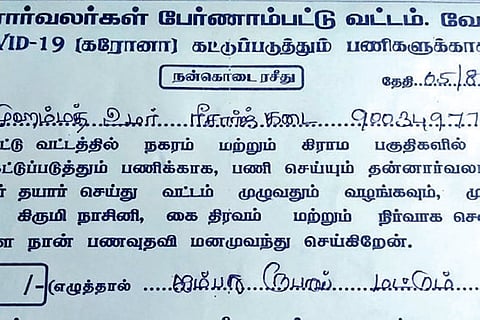 ார்வலர்கள் பேர்ணாம்பட்டு வட்டம். வே
VID-19 (கரோனா) கட்டுப்படுத்தும் பணிகளுக்காக
நன்கொடை ரசீது
தேதி 05/8
முஹம்மத் உமர் ரீசார்ஜ் கடை 90034977
ட்டு வட்டத்தில் நகரம் மற்றும் கிராம பகுதிகளில்
கட்டுப்படுத்தும் பணிக்காக, பணி செய்யும் தன்னார்வல
ர் தயார் செய்து வட்டம் முழுவதும் வழங்கவும், மு
கிருமி நாசினி, கை திரவம் மற்றும் நிர்வாக செ
ள நான் பணவுதவி மனமுவந்து செய்கிறேன்.
/-(எழுத்தால் ஐம்பது ரூபாய் மட்டும்